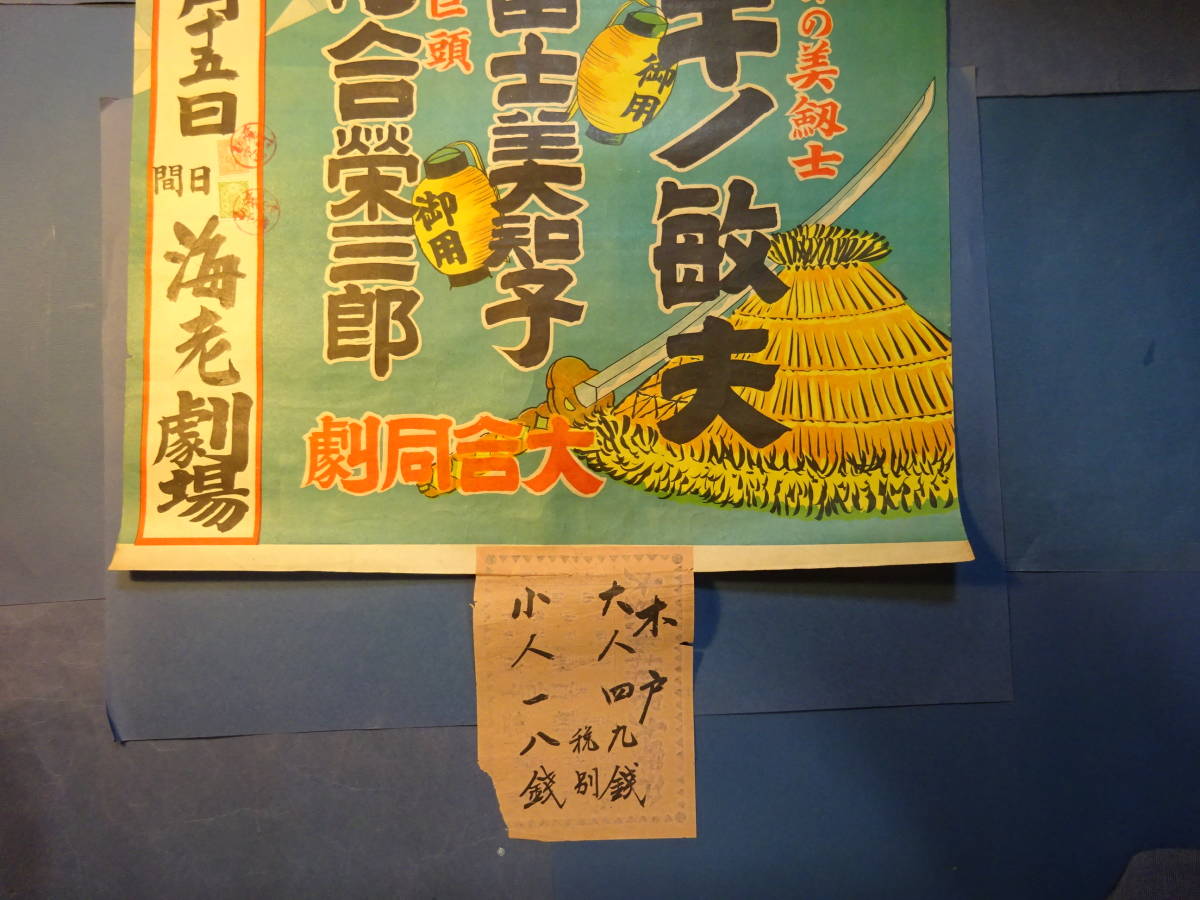 の美劔士
キノ敏夫
御用
富士美智子
巨頭
御用
合榮三郎
大合同劇
月十五日
日間
海老劇場
木戸
大人四九銭
税別
小人一八銭